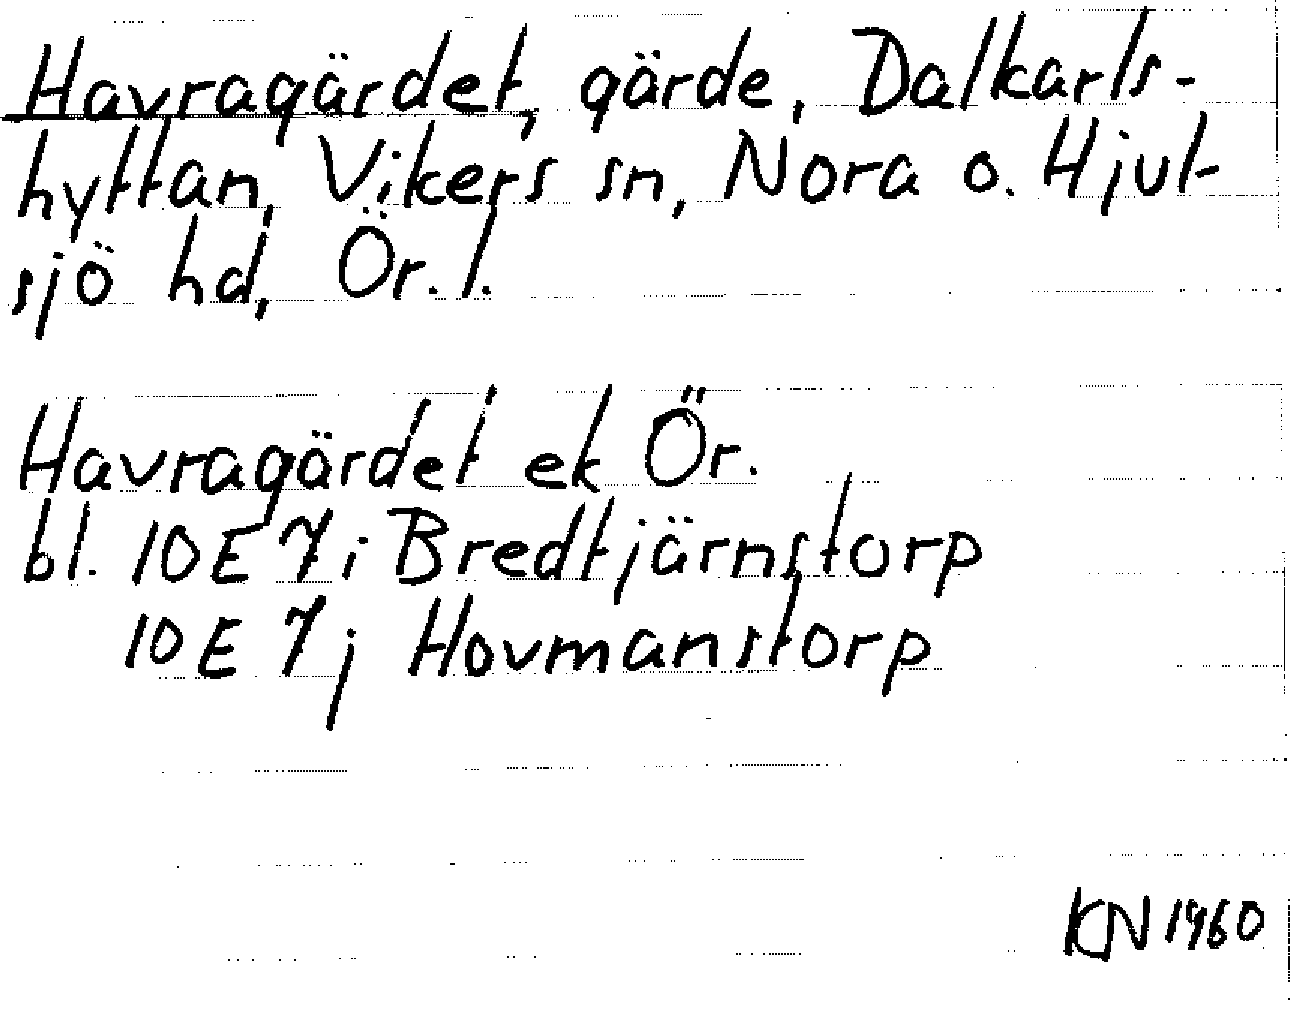 Havragärdet, gärde, Dalkarls-
hyttan, Vikers sn, Nora o. Hjul-
sjö hd, Ör. l.
Havragärdet ek Ör.
bl. 10E 7i Bredtjärnstorp
10E 7j Hovmanstorp
KN 1960